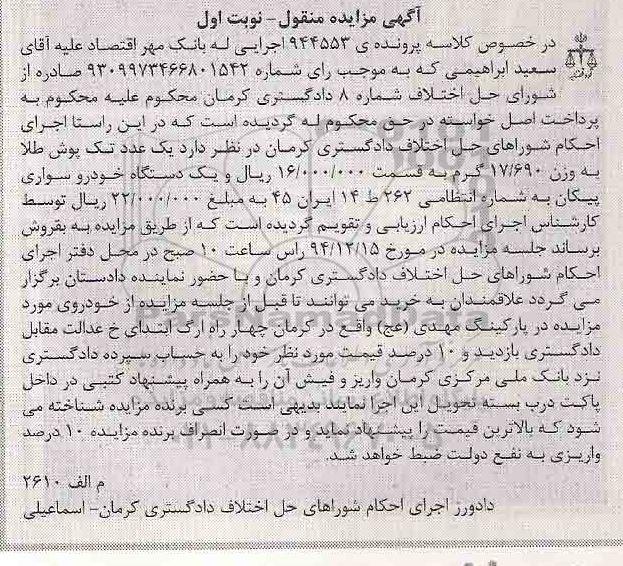 آگهی مزایده منقول- نوبت اول
در خصوص کلاسه پرونده ی ۹۴۴۵۵۳ اجرایی له بانک مهر اقتصاد علیه آقای
سعید ابراهیمی که به موجب رای شماره ۹۳۰۹۹۷۳۴۶۶۸۰۱۵۴۲ صادره از
شورای حل اختلاف شماره ۸ دادگستری کرمان محکوم علیه محکوم به
پرداخت اصل خواسته در حق محکوم له گردیده است که در این راستا اجرای
احکام شوراهای حل اختلاف دادگستری کرمان در نظر دارد یک عدد تک پوش طلا
به وزن ۱۷/۶۹۰ گرم به قسمت ۱۶/۰۰۰/۰۰۰ ریال و یک دستگاه خودرو سواری
پیکان به شماره انتظامی ۲۶۲ ط ۱۴ ایران ۴۵ به مبلغ ۲۲/۰۰۰/۰۰۰ ریال توسط
کارشناس اجرای احکام ارزیابی و تقویم گردیده است که از طریق مزایده به بفروش
برساند جلسه مزایده در مورخ ۹۴/۱۲/۱۵ راس ساعت ۱۰ صبح در محل دفتر اجرای
احکام شوراهای حل اختلاف دادگستری کرمان و با حضور نماینده دادستان برگزار
می گردد علاقمندان به خرید می توانند تا قبل از جلسه مزایده از خودروی مورد
مزایده در پارکینگ مهدی (عج) واقع در کرمان چهار راه ارگ ابتدای خ عدالت مقابل
دادگستری بازدید و ۱۰ درصد قیمت مورد نظر خود را به حساب سپرده دادگستری
نزد بانک ملی مرکزی کرمان واریز و فیش آن را به همراه پیشنهاد کتبی در داخل
پاکت درب بسته تحویل این اجرا نمایند بدیهی است کسی برنده مزایده شناخته می
شود که بالاترین قیمت را پیشنهاد نماید و در صورت انصراف برنده مزایده ۱۰ درصد
واریزی به نفع دولت ضبط خواهد شد.
م الف ۲۶۱۰
دادورز اجرای احکام شوراهای حل اختلاف دادگستری کرمان- اسماعیلی
ParsNamadData